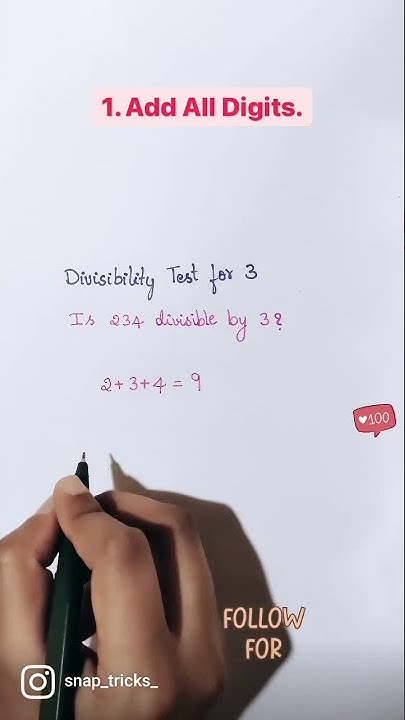 1. Add All Digits.
Divisibility Test for 3
Is 234 divisible by 3?
2+3+4 = 9
100
FOLLOW
FOR
snap_tricks_